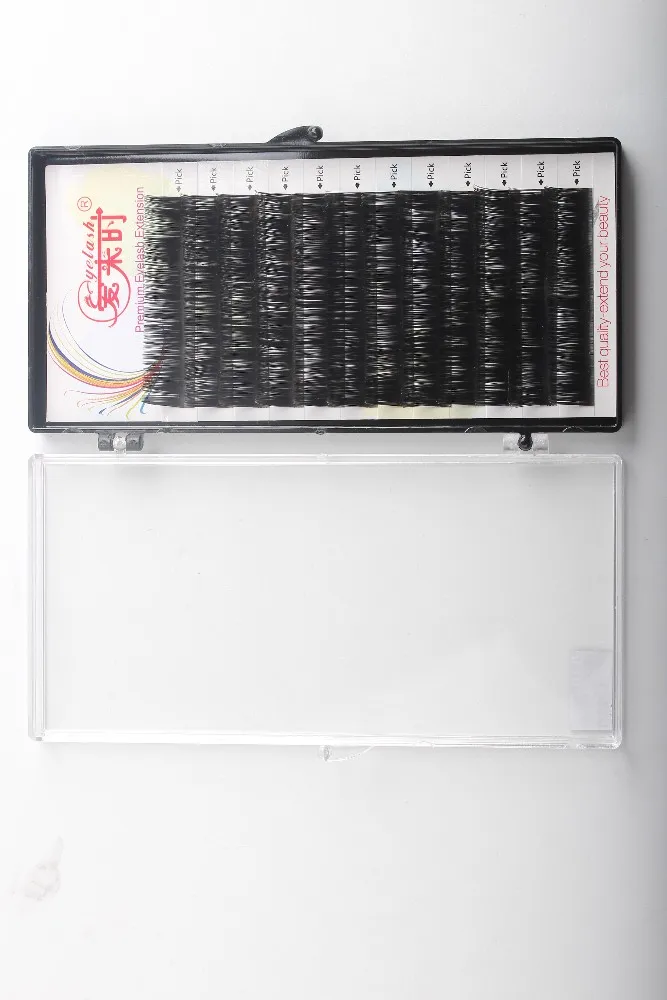 eyelash®
爱来时
Premium Eyelash Extension
Pick
Pick
Pick
Pick
Pick
Pick
Pick
Pick
Pick
Pick
Pick
Pick
Best quality-extend your beauty